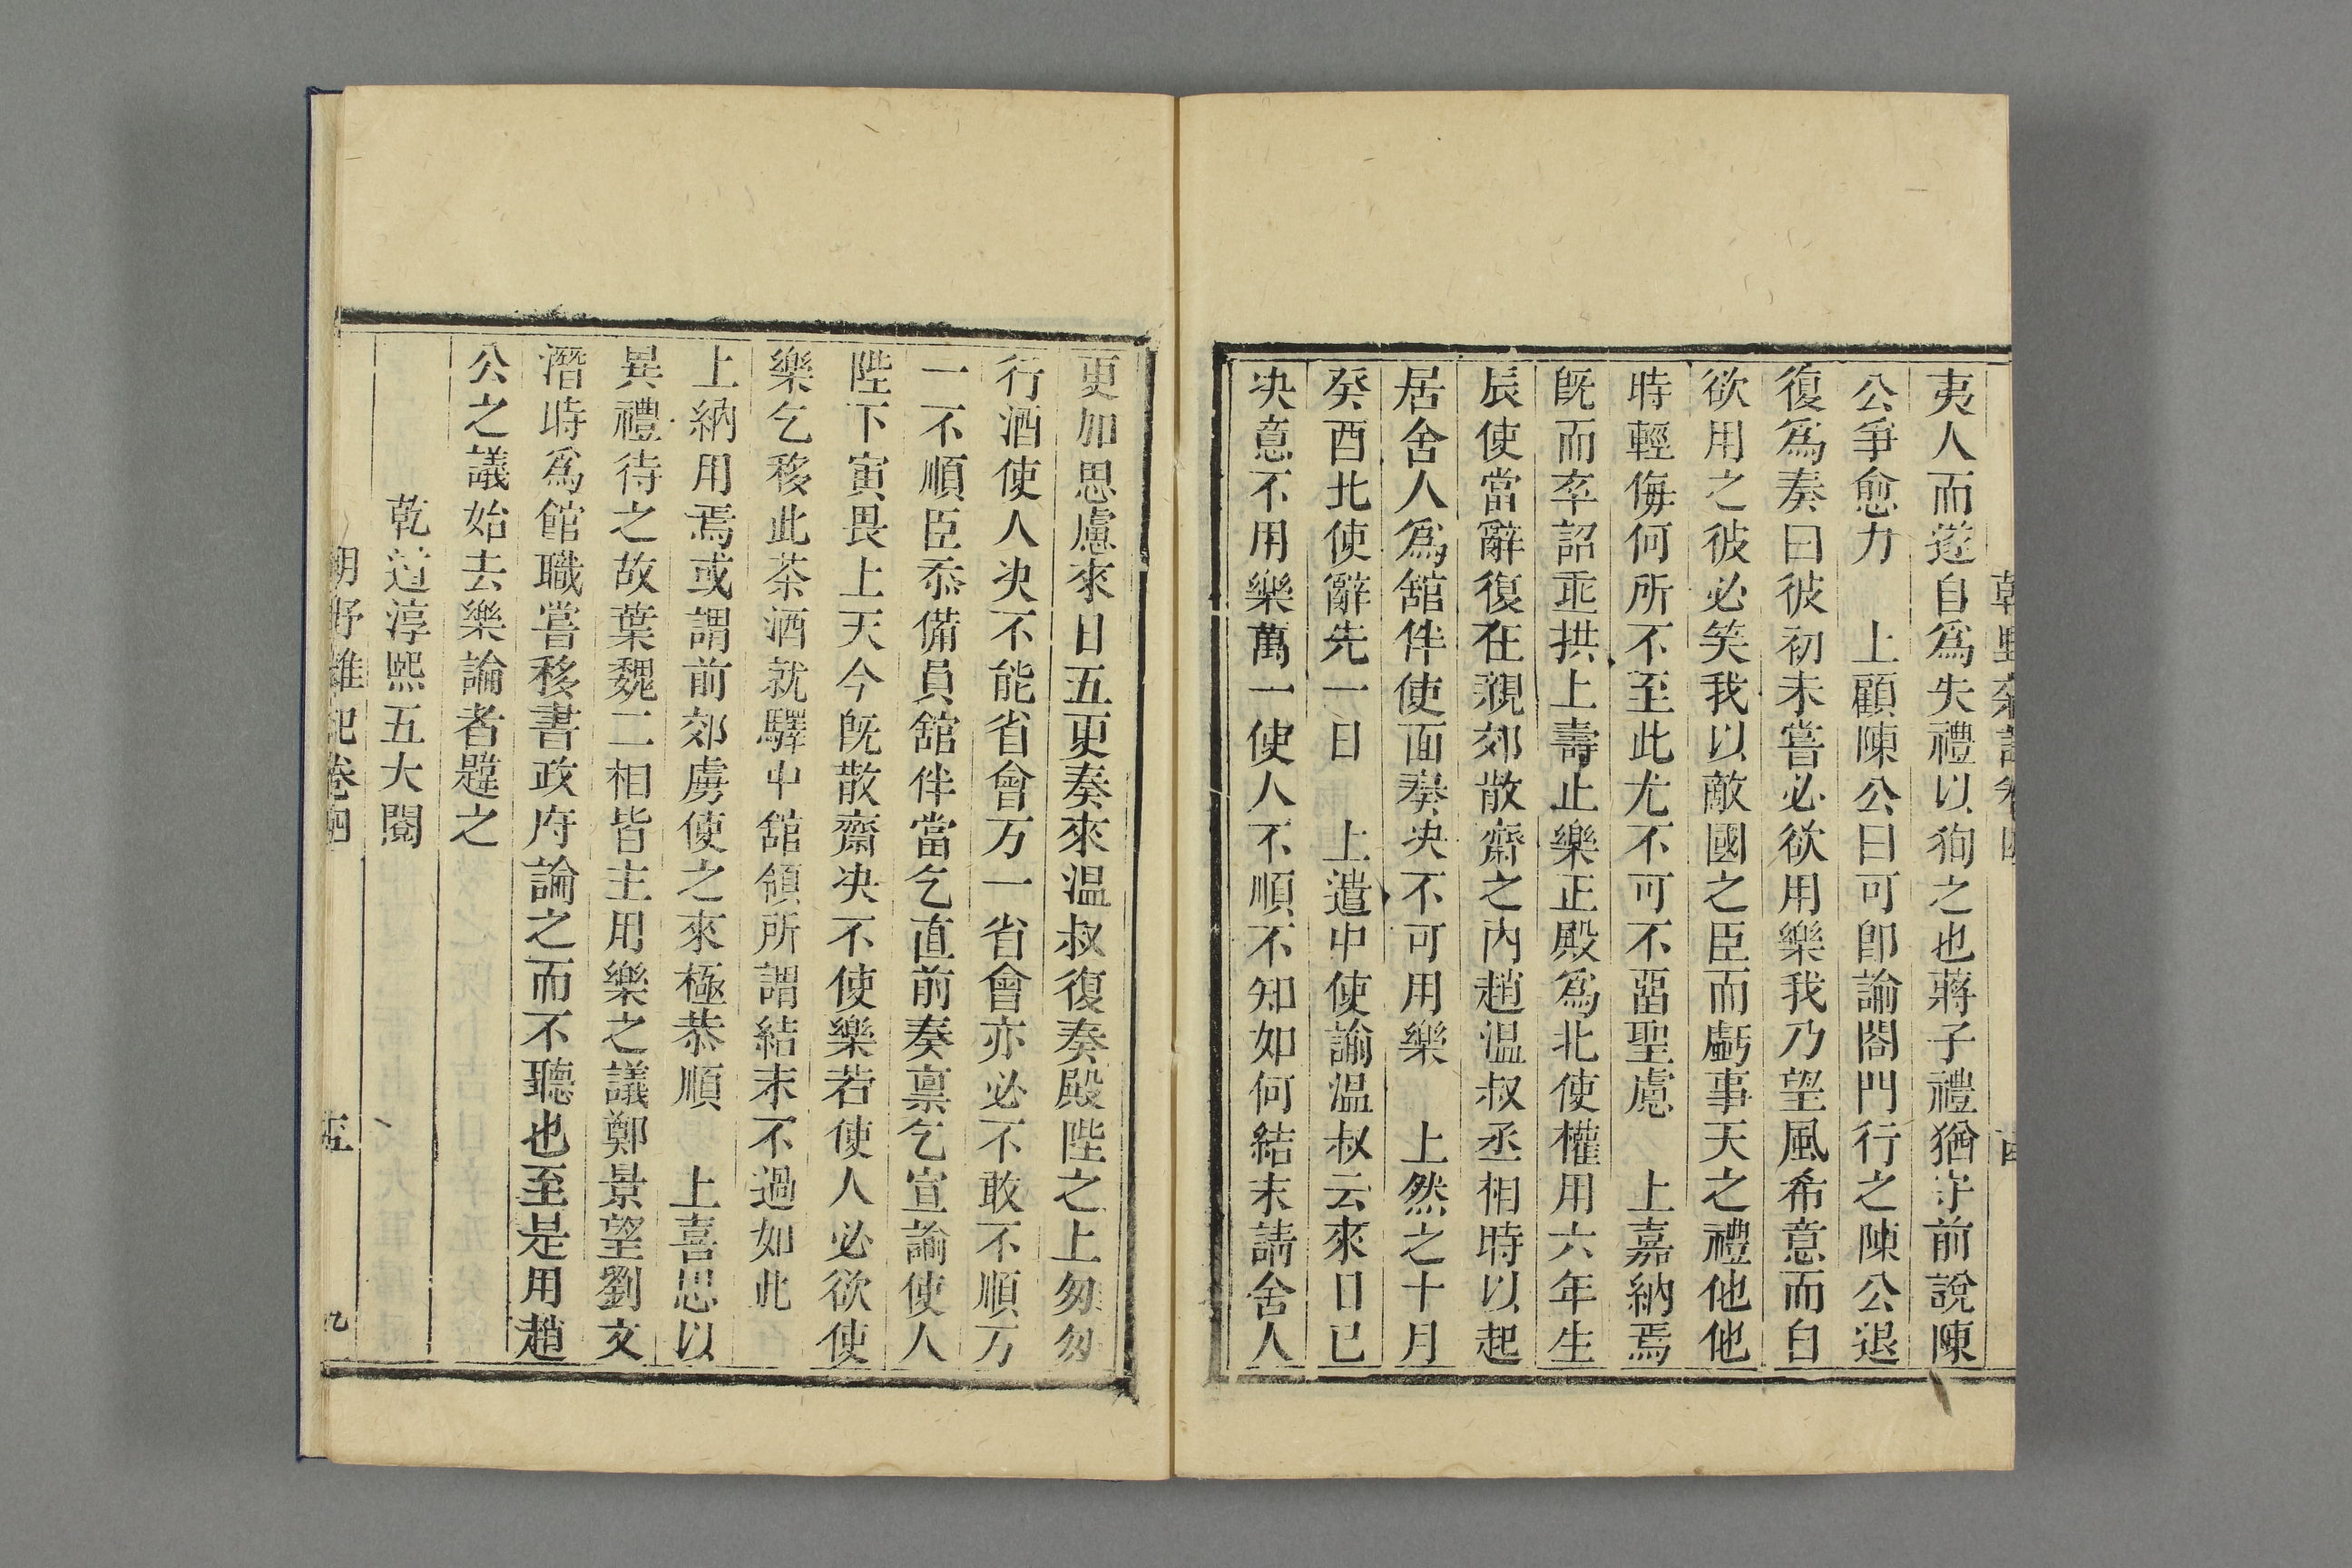 夷人而遂自爲失禮以狥之也蔣子禮猶守前說陳
公爭愈力　上顧陳公曰可卽諭閤門行之陳公退
復爲奏曰彼初未嘗必欲用樂我乃望風希意而自
欲用之彼必笑我以敵國之臣而虧事天之禮他他
時輕侮何所不至此尤不可不畱聖慮　上嘉納焉
旣而卒詔垂拱上壽止樂正殿爲北使權用六年生
辰使當辭復在親郊散齋之內趙温叔丞相時以起
居舍人爲舘伴使面奏决不可用樂　上然之十月
癸酉北使辭先一日　上遣中使諭温叔云來日已
决意不用樂萬一使人不順不知如何結末請舍人
更加思慮來日五更奏來温叔復奏殿陛之上匆匆
行酒使人决不能省會万一省會亦必不敢不順万
一不順臣忝備員舘伴當乞直前奏禀乞宣諭使人
陛下寅畏上天今旣散齋决不使樂若使人必欲使
樂乞移此茶酒就驛中舘領所謂結末不過如此
上納用焉或謂前郊虜使之來極恭順　上喜思以
異禮待之故葉魏二相皆主用樂之議鄭景望劉文
潛時爲館職嘗移書政府論之而不聽也至是用趙
公之議始去樂論者韙之
乾道淳熙五大閱
朝野雜記卷四